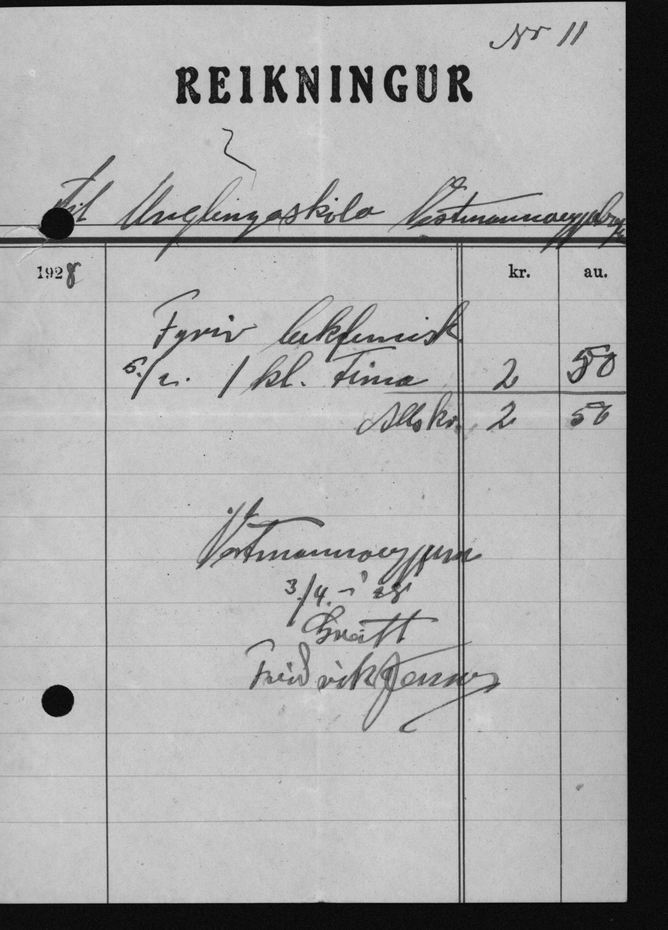 Nr 11
REIKNINGUR
Til Unglingaskóla Vestmannaeyja
1928 kr. au.
Fyrir leikfimisk
5/2. 1 kl. tima 2 50
Alls kr. 2 50
Vestmannaeyjum
3/4. - '28
Kvitt
Friðrik Jesson